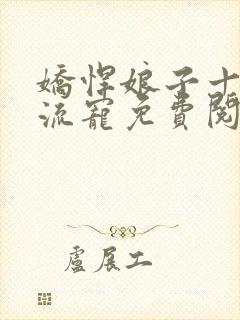 嬌悍娘子十
流寵免費閱
盧展工